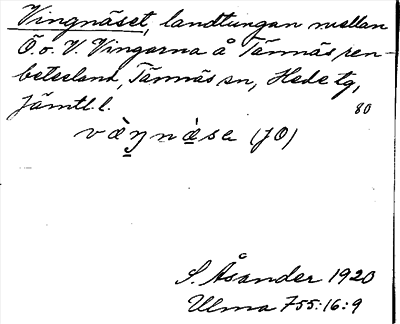 Vingnäset, landtungan mellan
Ö. o. V. Vingarna å Tännäs ren-
betesland, Tännäs sn, Hede tg,
Jämtl. l.
80
vὰŋnὰ̱se (JO)
S. Åsander 1920
Ulma 755:16:9